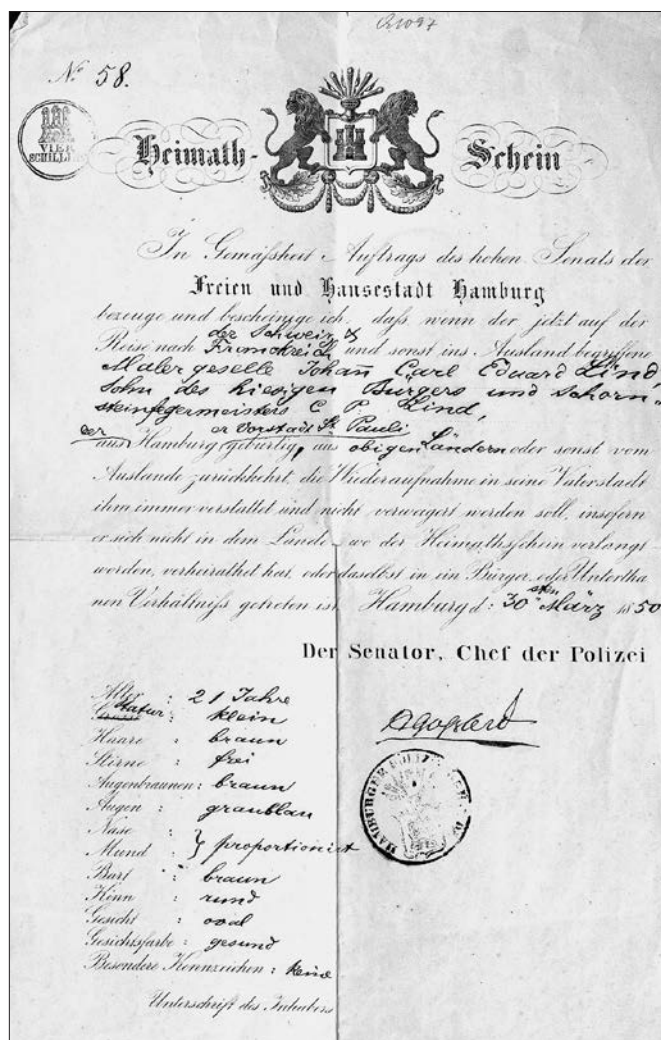 No 58.
VIER
SCHILLING
Heimath- Schein
In Gemäfsheit Auftrags des hohen Senats der
Freien und Hansestadt Hamburg
bezeuge und bescheinige ich, dafs, wenn der jetzt auf der
Reise nach der Schweiz & Franckreich und sonst ins Ausland begriffene
Malergeselle Johan Carl Eduard Lind,
Sohn des hiesigen Bürgers und Schorn-
steinfegermeisters C. P. Lind,
er Vorstadt St. Pauli
aus Hamburg gebürtig, aus obigen Ländern oder sonst vom
Auslande zurückkehrt, die Wiederaufnahme in seine Vaterstadt
ihm immer verstattet und nicht verweigert werden soll, insofern
er sich nicht in dem Lande, wo der Heimathsschein verlangt
worden, verheirathet hat, oder daselbst in ein Bürger- oder Untertha
nen Verhältnifs getreten ist. Hamburg d: 30sten März 1850
Der Senator, Chef der Polizei
Alter : 21 Jahre
Statur : klein
Haare : braun
Stirne : frei
Augenbraunen : braun
Augen : graublau
Nase :
Mund : } proportionirt
Bart : braun
Kinn : rund
Gesicht : oval
Gesichtsfarbe : gesund
Besondere Kennzeichen : keine
Unterschrift des Inhabers
HAMBURGER POLIZEI